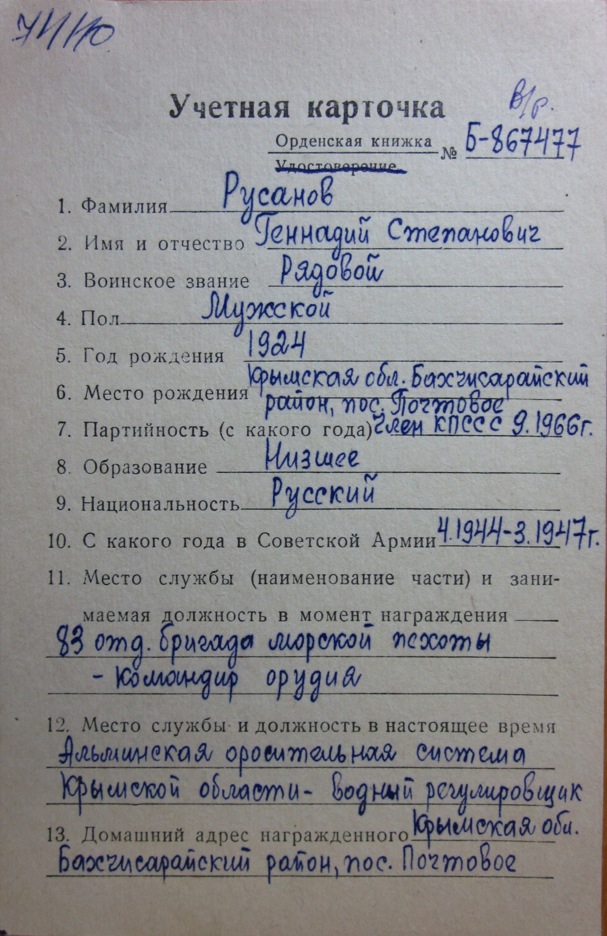 Учетная карточка
В/р.
Орденская книжка
Удостоверение № Б-867477
1. Фамилия Русанов
2. Имя и отчество Геннадий Степанович
3. Воинское звание Рядовой
4. Пол Мужской
5. Год рождения 1924
6. Место рождения Крымская обл. Бахчисарайский
район, пос. Почтовое
7. Партийность (с какого года) Член КПССС 9.1966г.
8. Образование Низшее
9. Национальность Русский
10. С какого года в Советской Армии 4.1944-3.1947г.
11. Место службы (наименование части) и зани-
маемая должность в момент награждения
83 отд. бригада морской пехоты
- командир орудия
12. Место службы и должность в настоящее время
Альминская оросительная система
Крымской области - водный регулировщик
13. Домашний адрес награжденного Крымская обл.
Бахчисарайский район, пос. Почтовое